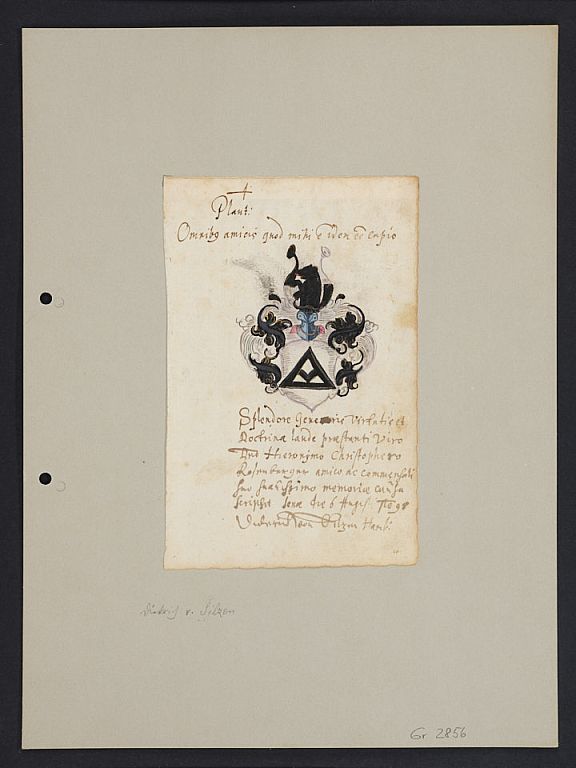 Plaut:
Omnibq amicis quod mihi ē idem eē cupio
Splendore Generis Virtutis et
Doctrina laude præstanti Viro
Dnō Hieronimo Christophero
Rosenburger amico ac commensali
suo suavissimo memoriæ causa
scripsit Jena die 6 Augus: Aō 98
von Hamb:
Dietrich v.
Gr 2856